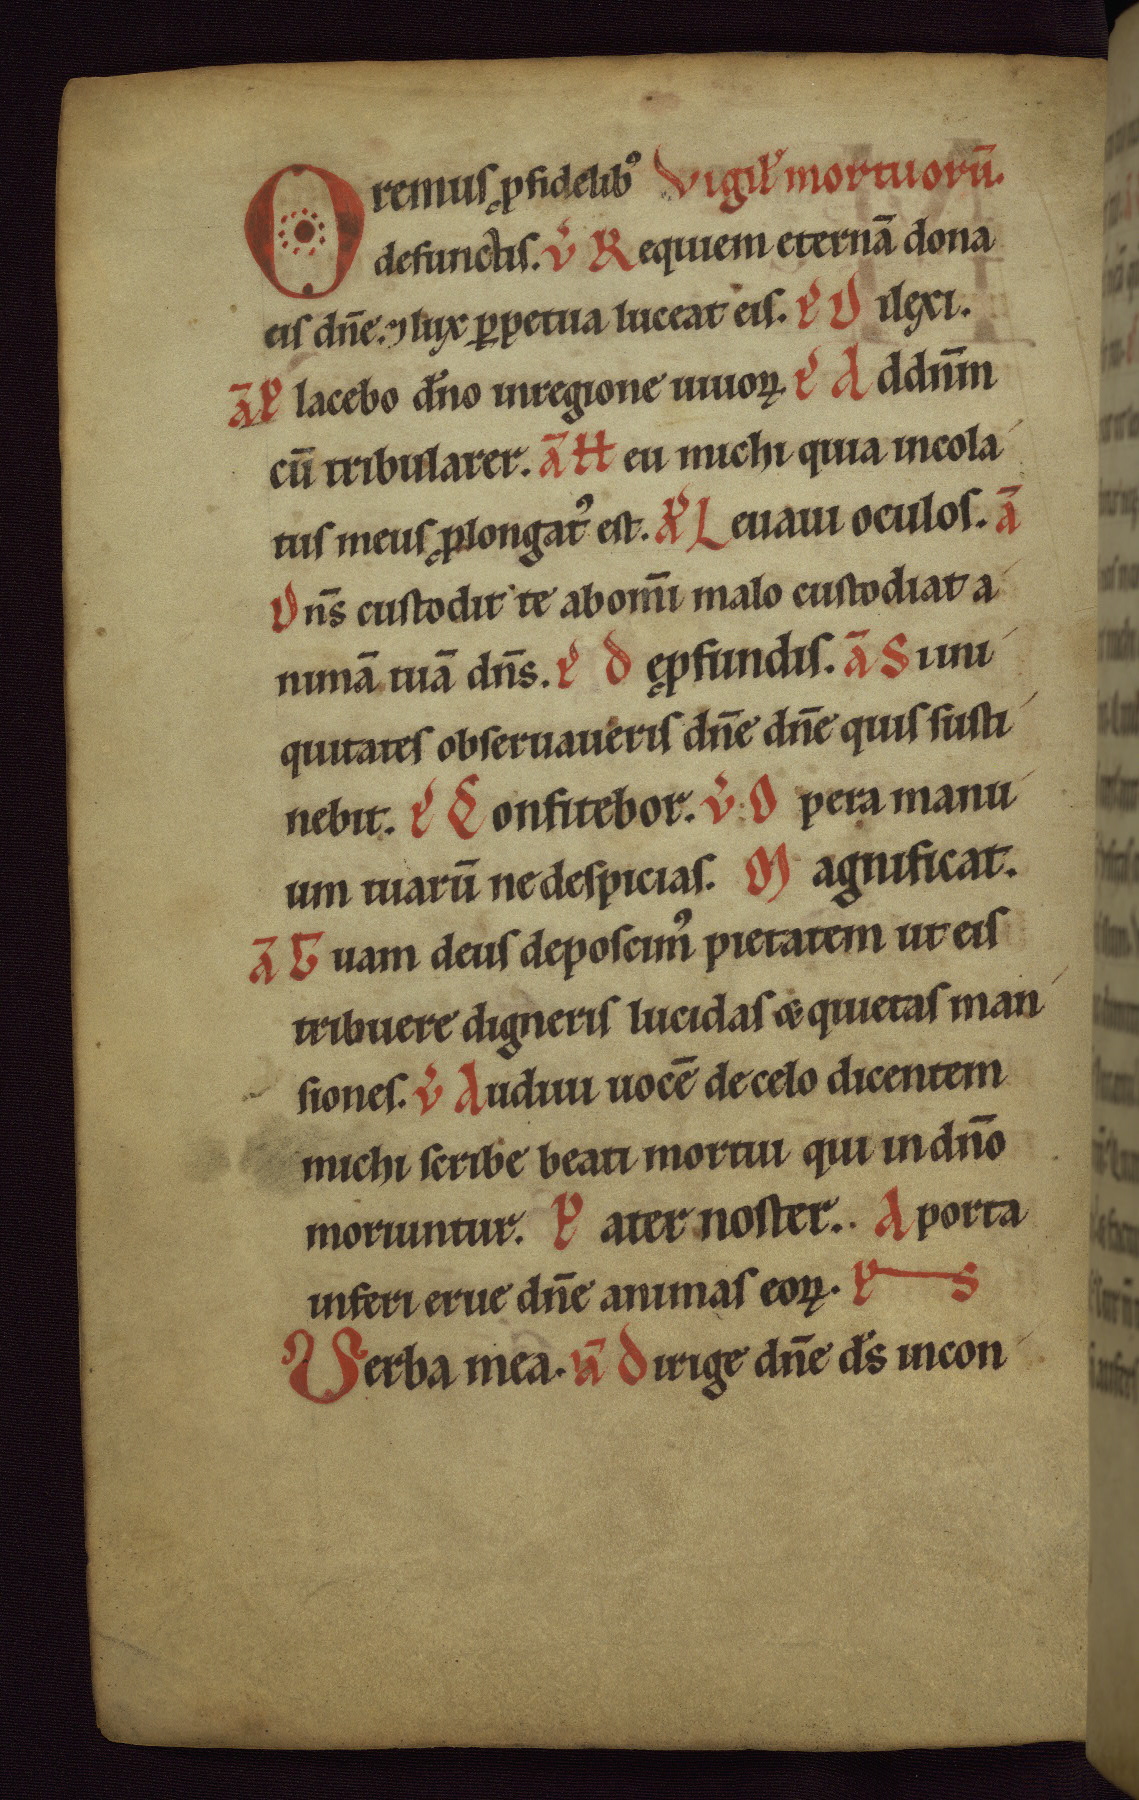 Oremus ꝓ fidelibꝰ Vigil̄ mortuorū.
defunctis. v̄ Requiem eternā dona
eis dn̄e. ⁊ lux ꝑpetua luceat eis. P̄ Dilexi.
ā Placebo dn̄o in regione uiuoꝝ. P̄ Ad dn̄m
cū tribularer. ā Heu michi quia incola
tus meus ꝓlongatꝰ est. P̄ Leuaui oculos. ā
Dn̄s custodit te ab om̄i malo custodiat a
nimā tuā dn̄s. P̄ De ꝓfundis. ā Si ini
quitates obseruaueris dn̄e dn̄e quis susti
nebit. P̄ Confitebor. v̄ Opera manu
um tuarū ne despicias. Magnificat.
ā Tuam deus deposcimꝰ pietatem ut eis
tribuere digneris lucidas & quietas man
siones. v̄ Audiui uocē de celo dicentem
michi scribe beati mortui qui in dn̄o
moriuntur. Pater noster. A porta
inferi erue dn̄e animas eoꝝ. Ps
Verba mea. ā Dirige dn̄e ds̄ in con